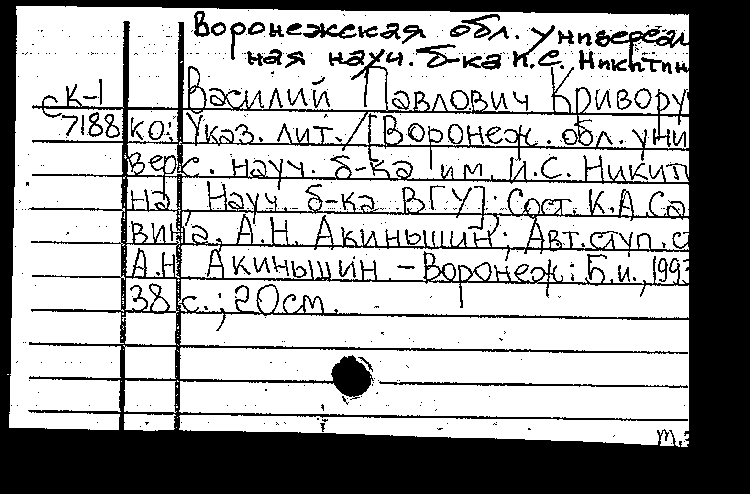 Воронежская обл. универсал
ная науч. б-ка И.С. Никитин
К-1 Василий Павлович Кривору
с 7188 ко: Указ. лит./[Воронеж. обл. уни
верс. науч. б-ка им. И.С. Никит
на, Науч. б-ка ВГУ]; Сост. К.А. Са
вина, А.Н. Акиньшин; Авт. ступ. с
А.Н. Акиньшин. – Воронеж: Б.и., 1993
38 с.; 20 см.